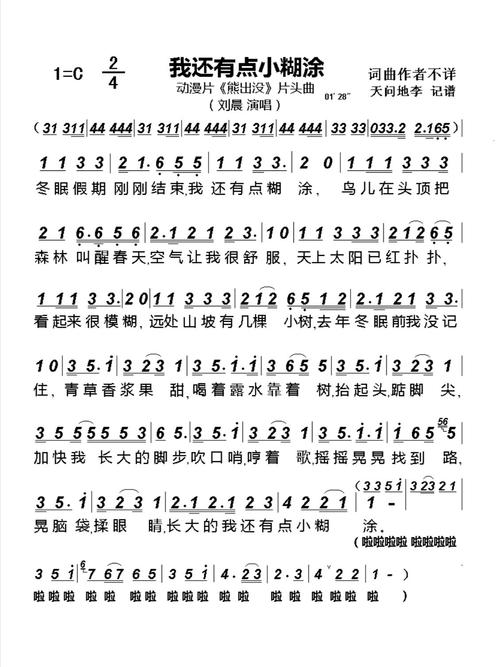 我还有点小糊涂
1=C 2/4
动漫片《熊出没》片头曲
(刘晨 演唱)
01'28"
词曲作者不详
天问地李 记谱
(31 311 | 44 444 | 31 311 | 44 444 | 35 333 | 33 333 | 033.2 | 2.165)
1 1 1 3 3 | 2 1. | 6 5 5 | 1 1 3 3 | 2 0 | 1 1 1 3 3
冬眠假期 刚刚结束,我 还有点糊 涂, 鸟儿在头顶把
2 1 | 6. 6 5 6 | 2. 1 2 1 | 3 3 3 | 1 0 | 3 3 3 3 | 2 1 2 6 5
森林 叫醒春天,空气让我很舒 服, 天上太阳已红扑 扑,
1 1 1 3 3 | 2 0 | 1 1 3 3 3 | 2 1 2 | 6 5 1 2 | 3 3 3 3 3 2
看起来很模糊, 远处山坡有几棵 小树,去年冬眠前我没记
1 0 | 3 5. 1 | 3 2 3 | 3 5. 1 | 3 2 3 | 3 5. 1 | 3 2 3
住, 青草香浆果 甜,喝着露水靠着 树,抬起头,踮脚 尖,
3 5 5 5 5 | 3 2 3 | 3 5. 1 | 3 2 3 | 3 5. 1 | 1 6 5 | 5
加快我 长大的脚步,吹口哨,哼着 歌,摇摇晃晃找到 路,
3 5. 1 | 3 2 3 | 2 1 2 3 | 0 3 | 4 2 2 1 | 1 -
(3 3 5 1 | 3 2 3 2 1
晃脑 袋,揉眼 睛,长大的我还有点小糊 涂。
(啦啦啦啦 啦啦啦啦
3 5 1 | 7 6 7 | 6 6 7 5 | 3 3 5 1 | 3 2 3 2 | 1 - )
啦 啦 啦 啦 啦 啦 啦 啦 啦 啦 啦 啦 啦 啦 啦 啦 )